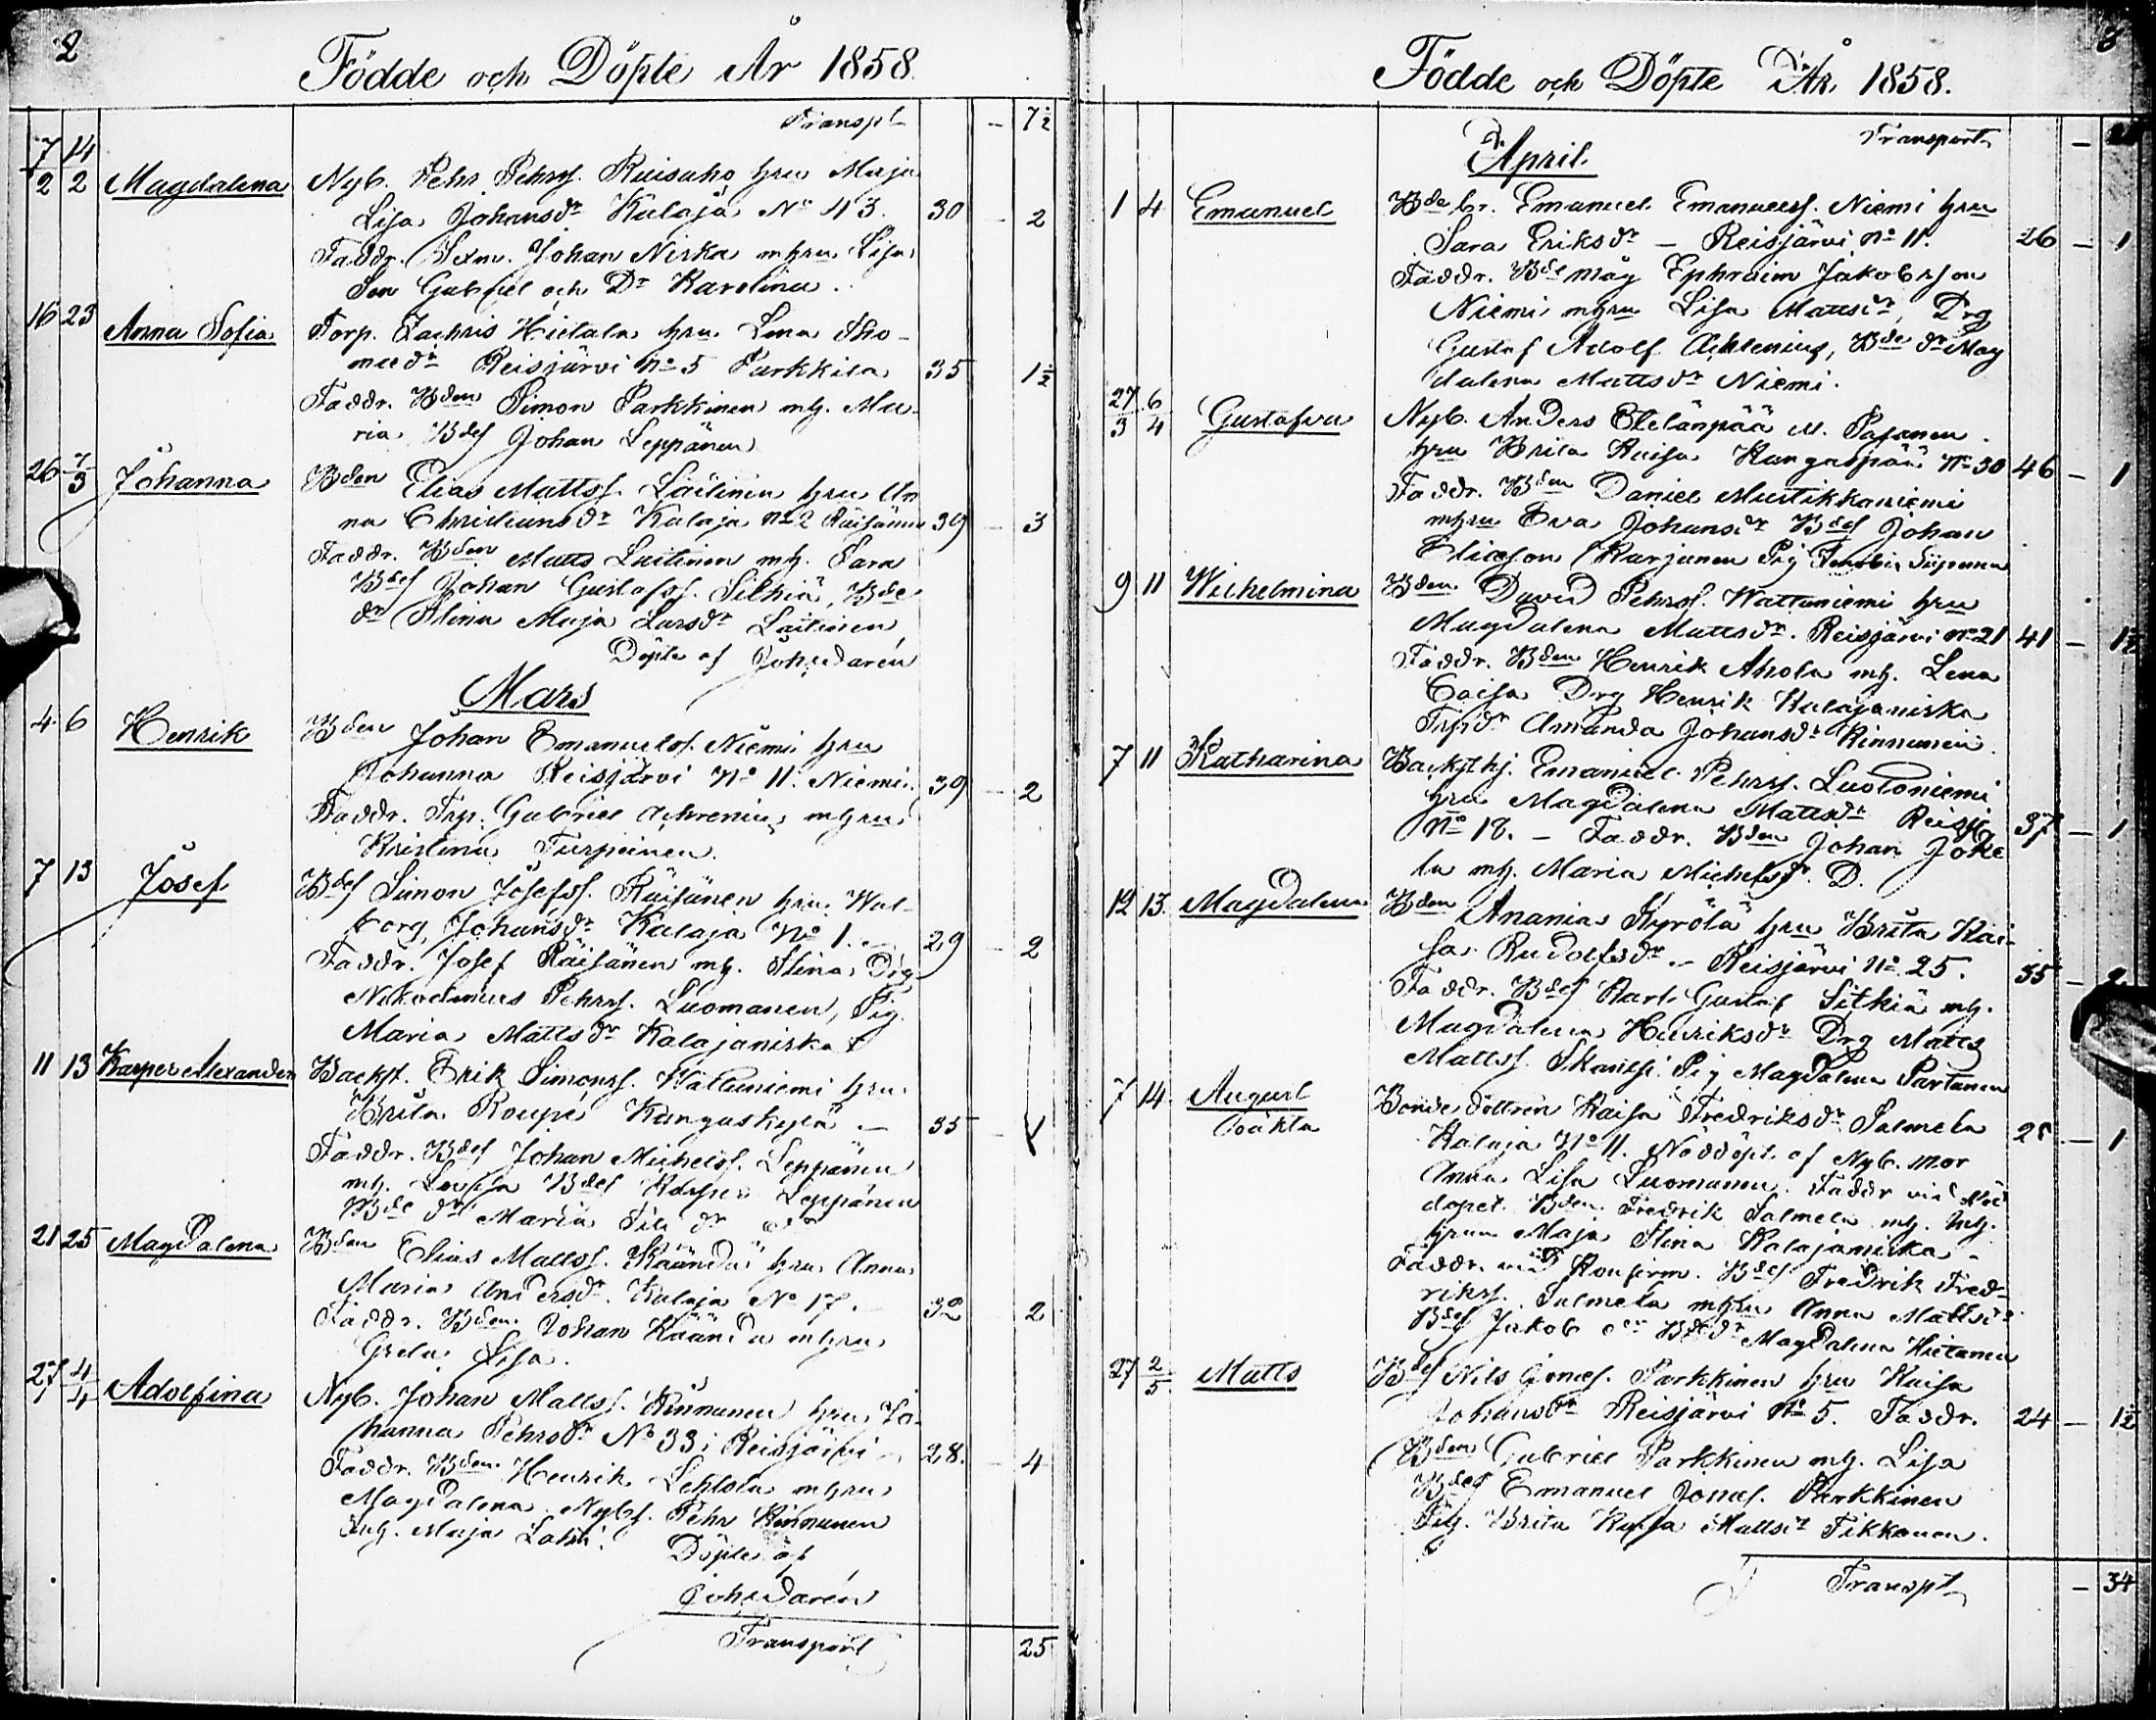 2
Födde och Döpte År 1858.
Transpt — 7½
7/2 14/2 Magdalena Nyb. Pehr Pehrss. Ruisaho hru Maja
Lisa Johansdr Kalaja No 43. 30 - 2
Faddr. Sexm. Johan Niska mhru Lisa
Son Gabriel och Dr Karolina.
16 23 Anna Sofia Torp. Zachris Hietala hru Lena Tho-
masdr Reisjärvi No 5 Parkkila 35 1½
Faddr. Bden Simon Parkkinen mh. Ma-
ria, Bdes Johan Leppänen
26 7/3 Johanna Bden Elias Mattss. Laitinen hru An
na Christiansdr Kalaja No 2 Räisänen 39 - 3
Faddr. Bden Matts Laitinen mh. Sara
Bdes Johan Gustafss. Sitkiä, Bde
dr Stina Maja Larsdr Laitinen
Döpte af Joh. Widarén
Mars
4 6 Henrik Bden Johan Emanuelss. Niemi hru
Johanna Reisjärvi No 11. Niemi. 39 - 2
Faddr. Trp. Gabriel Achrenius mhru
Kristina Turpeinen.
7 13 Josef Bdes Simon Josefss. Räisänen hru Wal-
borg Johansdr Kalaja No 1. 29 - 2
Faddr. Josef Räisänen mh. Stina, Drg
Nikodemus Pehrss. Luomanen, Pig.
Maria Mattsdr Kalajaniska
11 13 Kasper Alexander Backst. Erik Simonss. Wattuniemi hru
Brita Roupé Kangaskylä — 35 -
Faddr. Bdes Johan Michelss. Leppänen
mh. Lovisa Bdes Kasper Leppänen
Bde dr Maria
21 25 Magdalena Bden Elias Mattss. Kääntä hru Anna
Maria Andersdr. Kalaja No 17. 32 2
Faddr. Bden Johan Kääntä mhru
Greta Lisa.
27 4/4 Adolfina Nyb. Johan Mattss. Kinnunen hru Jo-
hanna Pehrsdr No 33 i Reisjärvi 28. - 4
Faddr. Bden Henrik Lehtola mhru
Magdalena. Nybs. Pehr Kinnunen
mh. Maja
Döpte af
Joh. Widarén
Transport 25
3
Födde och Döpte År 1858.
April. Transport — 25
1 4 Emanuel Bde br. Emanuel Emanuelss. Niemi hru
Sara Eriksdr — Reisjärvi No 11. 26 — 1
Faddr. Bde måg Ephraim Jakobsson
Niemi mhru Lisa Mattsdr, Drg
Gustaf Adolf Achrenius, Bde dr Mag
dalena Mattsdr Niemi.
27/3 6/4 Gustafva Nyb. Anders Etelänpää M. Pajanen
hru Brita Kaisa Kangaspää No 30 46 — 1
Faddr. Bden Daniel Mustikkaniemi
mhru Eva Johansdr Bdes Johan
Eliasson Karjanen Pig
9 11 Wilhelmina Bden David Pehrss. Wattuniemi hru
Magdalena Mattsdr. Reisjärvi No 21 41 — 1½
Faddr. Bden Henrik Ahola mh. Lena
Caisa Drg Henrik Kalajaniska
Trpdr Amanda Johansdr Kinnunen.
7 11 Katharina Backsthj. Emanuel Pehrss. Luotoniemi
hru Magdalena Mattsdr Reisj. 37 — 1
No 18. — Faddr. Bden Johan Joke
la mh. Maria Michelsdr. D.
12 13. Magdalena Bden Ananias Kyrölä hru Brita Kai-
sa Rudolfsdr. — Reisjärvi No 25. 35 — 2
Faddr. Bdes Karl Gustaf Sitkiä mh.
Magdalena Henriksdr Drg Matts
Mattss. Skantsi. Pig Magdalena Partanen
7 14 August Bonde dottren Kaisa Fredriksdr Salmela
Oäkta Kalaja No 11. Nöddöpt. af Nyb. mor 28 — 1
Anna Lisa Luomanen. Faddr vid Nöd
dopet. Bden Fredrik Salmela mh. Inh.
hrun Maja Stina Kalajaniska —
Faddr. vid Konfirm. Bdes Fredrik Fred-
rikss. Salmela mhru Anna Mattsdr
Bdes Jakob och Bde dr Magdalena Hietanen
27 2/5 Matts Bdes Nils Jonass. Parkkinen hru Kaisa
Johansdr Reisjärvi No 5. Faddr. 24 — 1½
Bden Gabriel Parkkinen mh. Lisa
Bdes Emanuel Jonass. Parkkinen
Pig. Brita Kajsa Mattsdr Tikkanen.
Transpt — 34